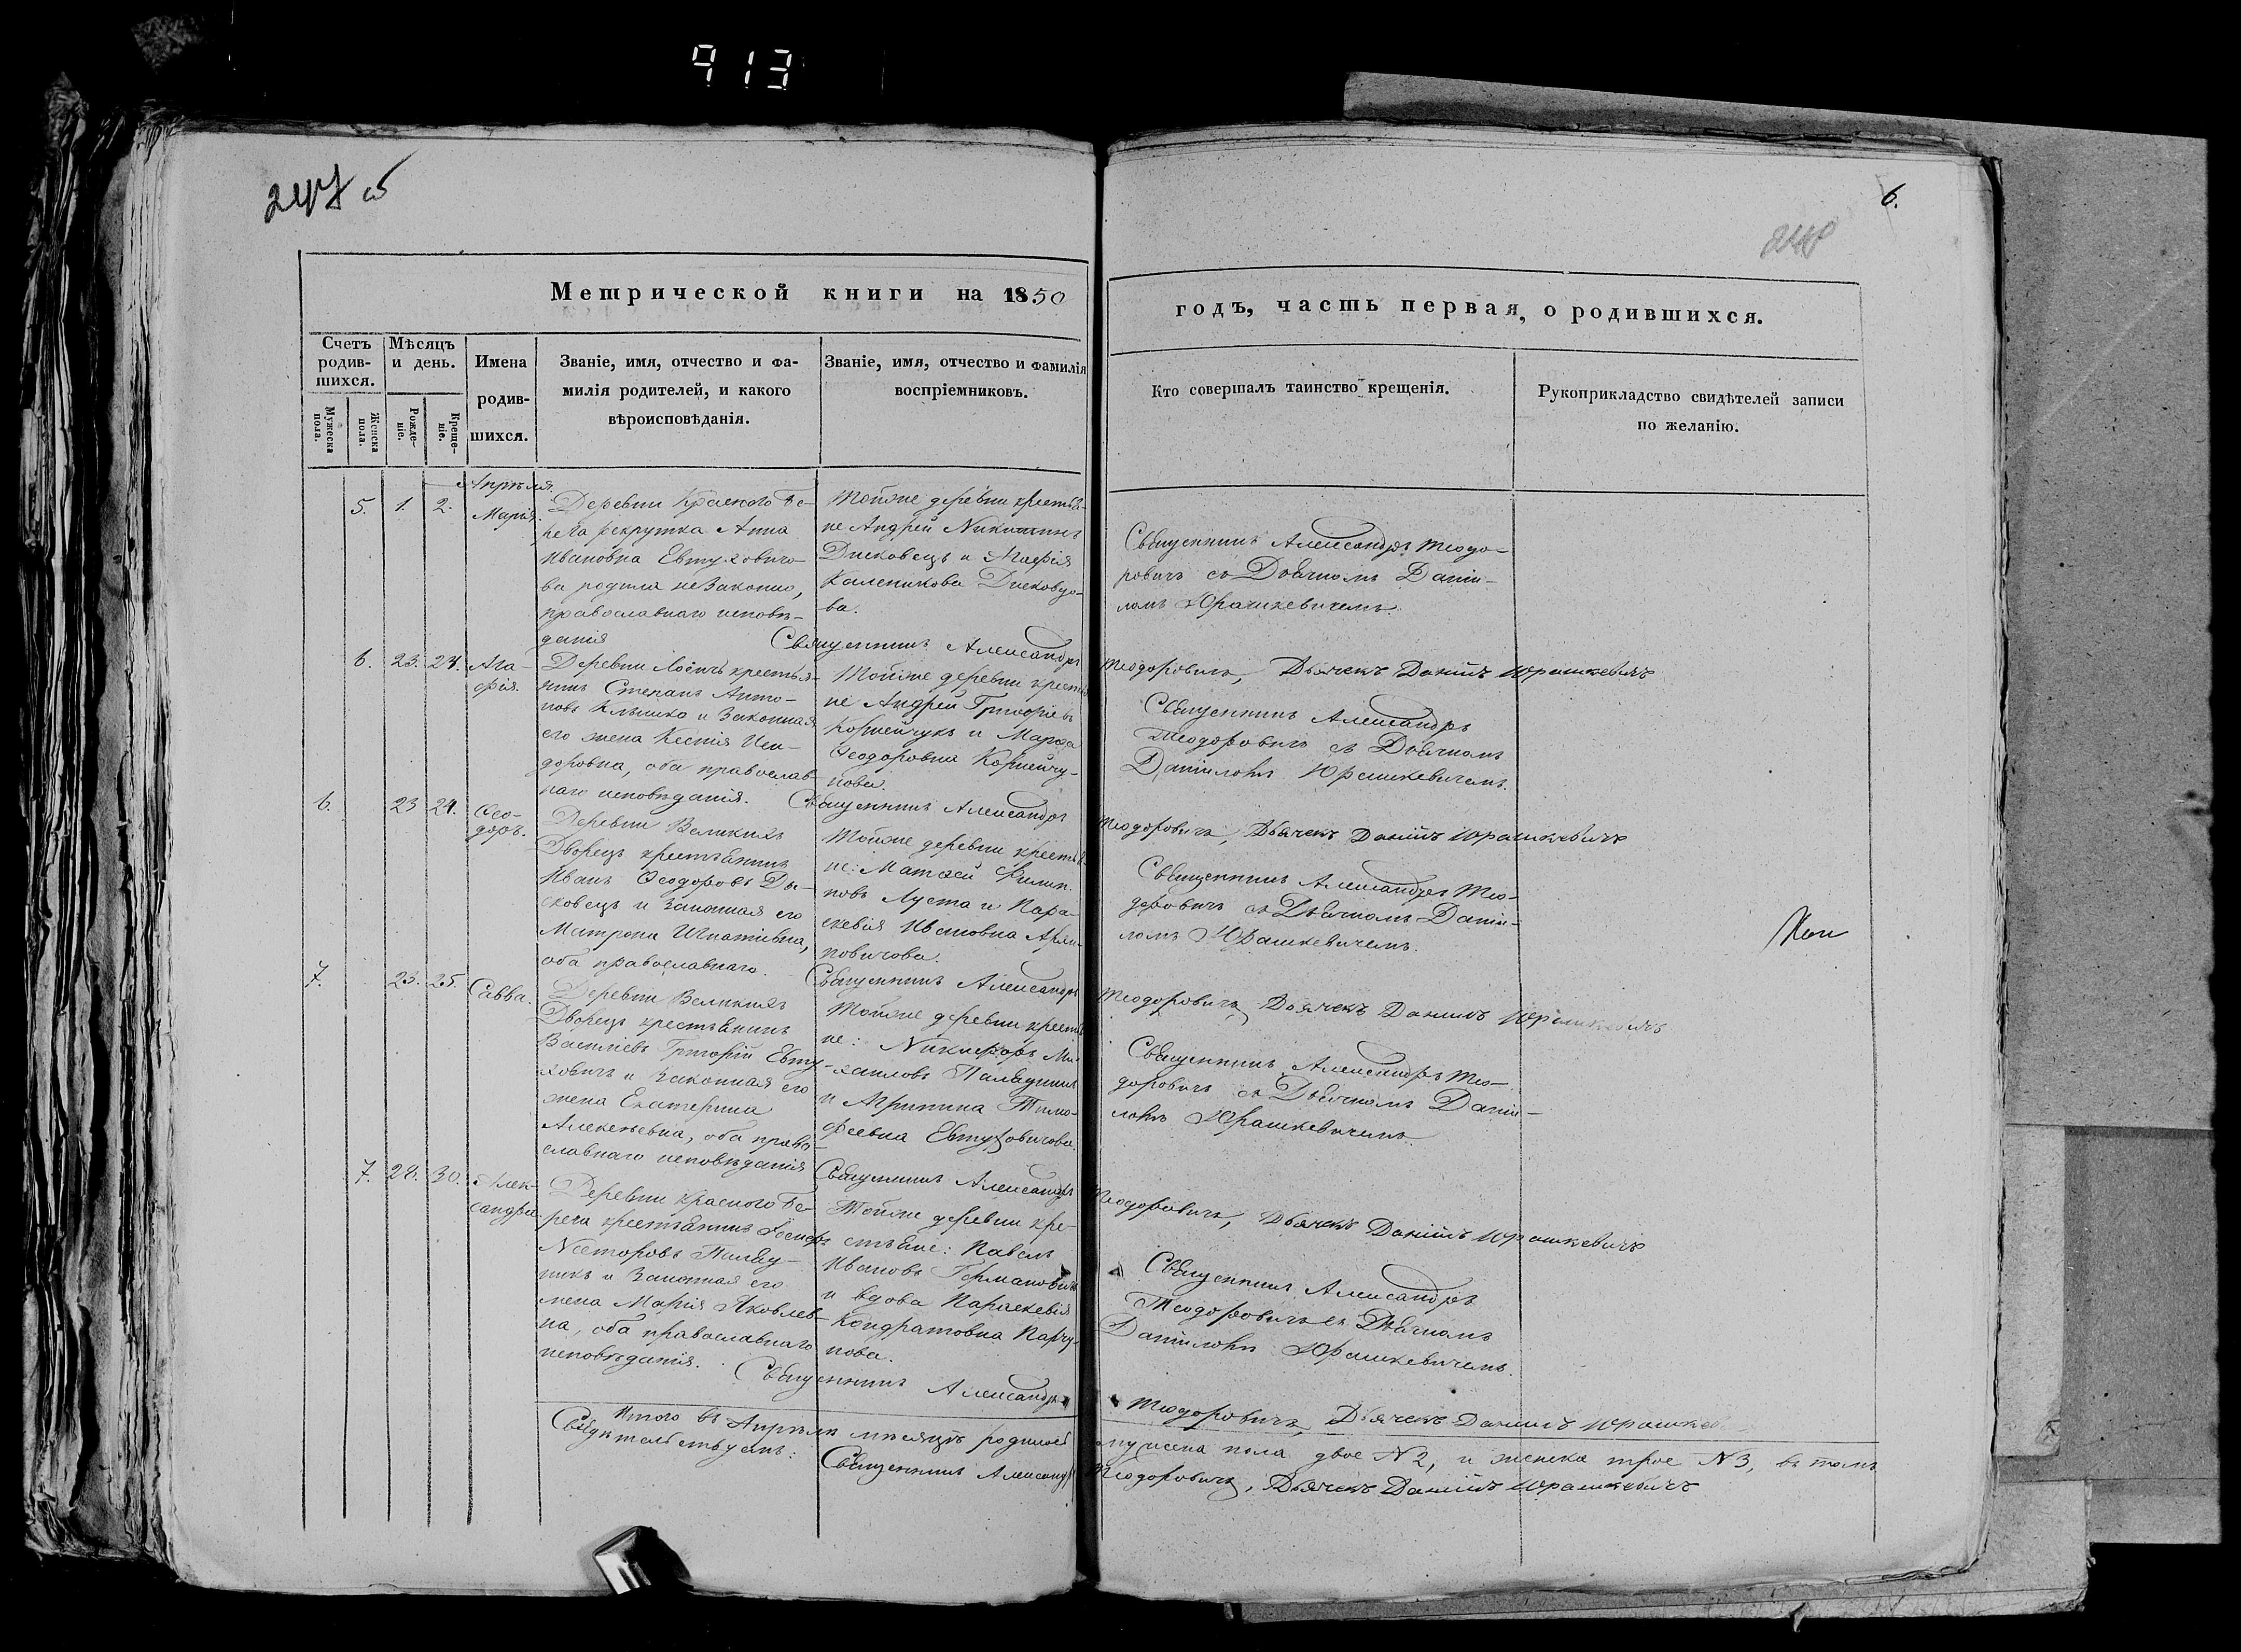 913
247 об
6.
Метрической книги на 1850
годъ, часть первая, о родившихся.
Счетъ родив-шихся.
Мѣсяцъ и день.
Имена родив-шихся.
Званіе, имя, отчество и фа-
милія родителей, и какого
вѣроисповѣданія.
Званіе, имя, отчество и фамилія
воспріемниковъ.
Кто совершалъ таинство крещенія.
Рукоприкладство свидѣтелей записи
по желанію.
Мужеска пола.
Женска пола.
Рожде-ніе.
Креще-ніе.
Апрѣля
5. 1. 2. Марія.
Деревни Красного Бе-
рега рекрутка Анна
Ивановна Евтуховичо-
ва родила незаконно,
православнаго исповѣ-
данія
Тойже деревни крестья-
не Андрей Никитинъ
Дисковецъ и Марія
Каленикова Дисковцо-
ва.
Священникъ Александръ Теодо-
ровичъ съ Дьячкомъ Даніи-
ломъ Юрашкевичемъ.
Священникъ Александръ Теодоровичъ, Дьячекъ Даніилъ Юрашкевичъ
6. 23. 24. Ага-
фія.
Деревни Лосичъ крестья-
нинъ Степанъ Анто-
новъ Климко и законная
его жена Ксенія Иси-
доровна, оба православ-
наго исповѣданія.
Тойже деревни крестья-
не Андрей Григоріевъ
Корнейчукъ и Марѳа
Ѳеодоровна Корнейчу-
кова.
Священникъ Александръ
Теодоровичъ съ Дьячкомъ
Даніиломъ Юрашкевичемъ.
Священникъ Александръ Теодоровичъ, Дьячекъ Даніилъ Юрашкевичъ
6. 23 24. Ѳео-
доръ.
Деревни Великихъ
Дворецъ крестьянинъ
Иванъ Ѳеодоровъ Ди-
сковецъ и законная его
Матрона Игнатіевна,
оба православнаго.
Тойже деревни крестья-
не: Матѳей Филип-
повъ Луста и Пара-
скевія Ивановна
Священникъ Александръ Тео-
доровичъ съ Дьячкомъ Даніи-
ломъ Юрашкевичемъ.
Священникъ Александръ Теодоровичъ, Дьячекъ Даніилъ Юрашкевичъ
7. 23. 25. Савва.
Деревни Великихъ
Дворецъ крестьянинъ
Василіевъ Григорій Евту-
ховичъ и законная его
жена Екатерина
Алексѣевна, оба право-
славнаго исповѣданія
Тойже деревни крестья-
не: Никифоръ Ми-
хаиловъ Паладникъ
и Агрипина Тимо-
феевна Евтуховичова.
Священникъ Александръ Тео-
доровичъ съ Дьячкомъ Даніи-
ломъ Юрашкевичемъ.
Священникъ Александръ Теодоровичъ, Дьячекъ Даніилъ Юрашкевичъ
7. 28. 30. Алек-
сандра.
Деревни Красного Бе-
рега крестьянинъ Іосифъ
Несторовъ Палад-
никъ и законная его
жена Марія Яковлев-
на, оба православнаго
исповѣданія.
Тойже деревни кре-
стьяне: Павелъ
Ивановъ Германовичъ
и вдова Параскевія
Кондратовна
Священникъ Александръ
Теодоровичъ съ Дьячкомъ
Даніиломъ Юрашкевичемъ.
Священникъ Александръ Теодоровичъ, Дьячекъ Даніилъ Юрашкевичъ
Итого въ Апрѣлѣ мѣсяцѣ родилось мужеска пола двое №2, и женска трое №3, въ томъ
Свидѣтельствуемъ: Священникъ Александръ Теодоровичъ, Дьячекъ Даніилъ Юрашкевичъ